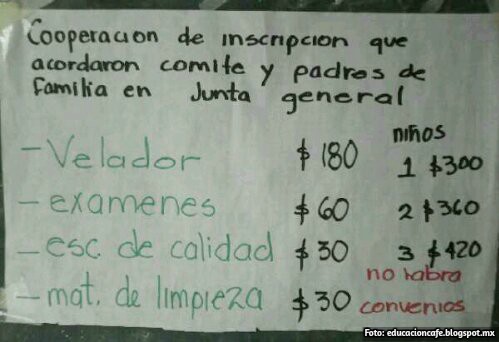 Cooperacion de inscripcion que
acordaron comite y padres de
familia en Junta general
niños
- Velador $ 180 1 $300
- examenes $ 60 2 $360
- esc. de calidad $ 30 3 $420
no habra
- mat. de limpieza $ 30 convenios
Foto: educacioncafe.blogspot.mx